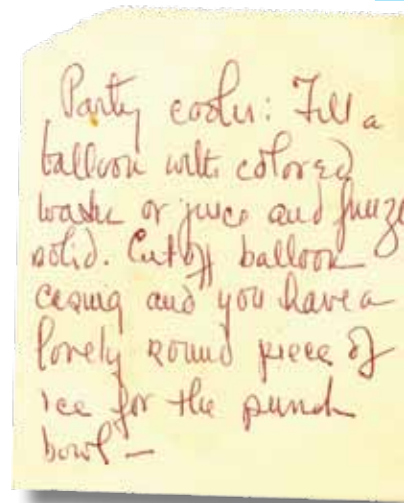 Party cooler: Fill a
balloon with colored
water or juice and freeze
solid. Cut off balloon
casing and you have a
lovely round piece of
ice for the punch
bowl —